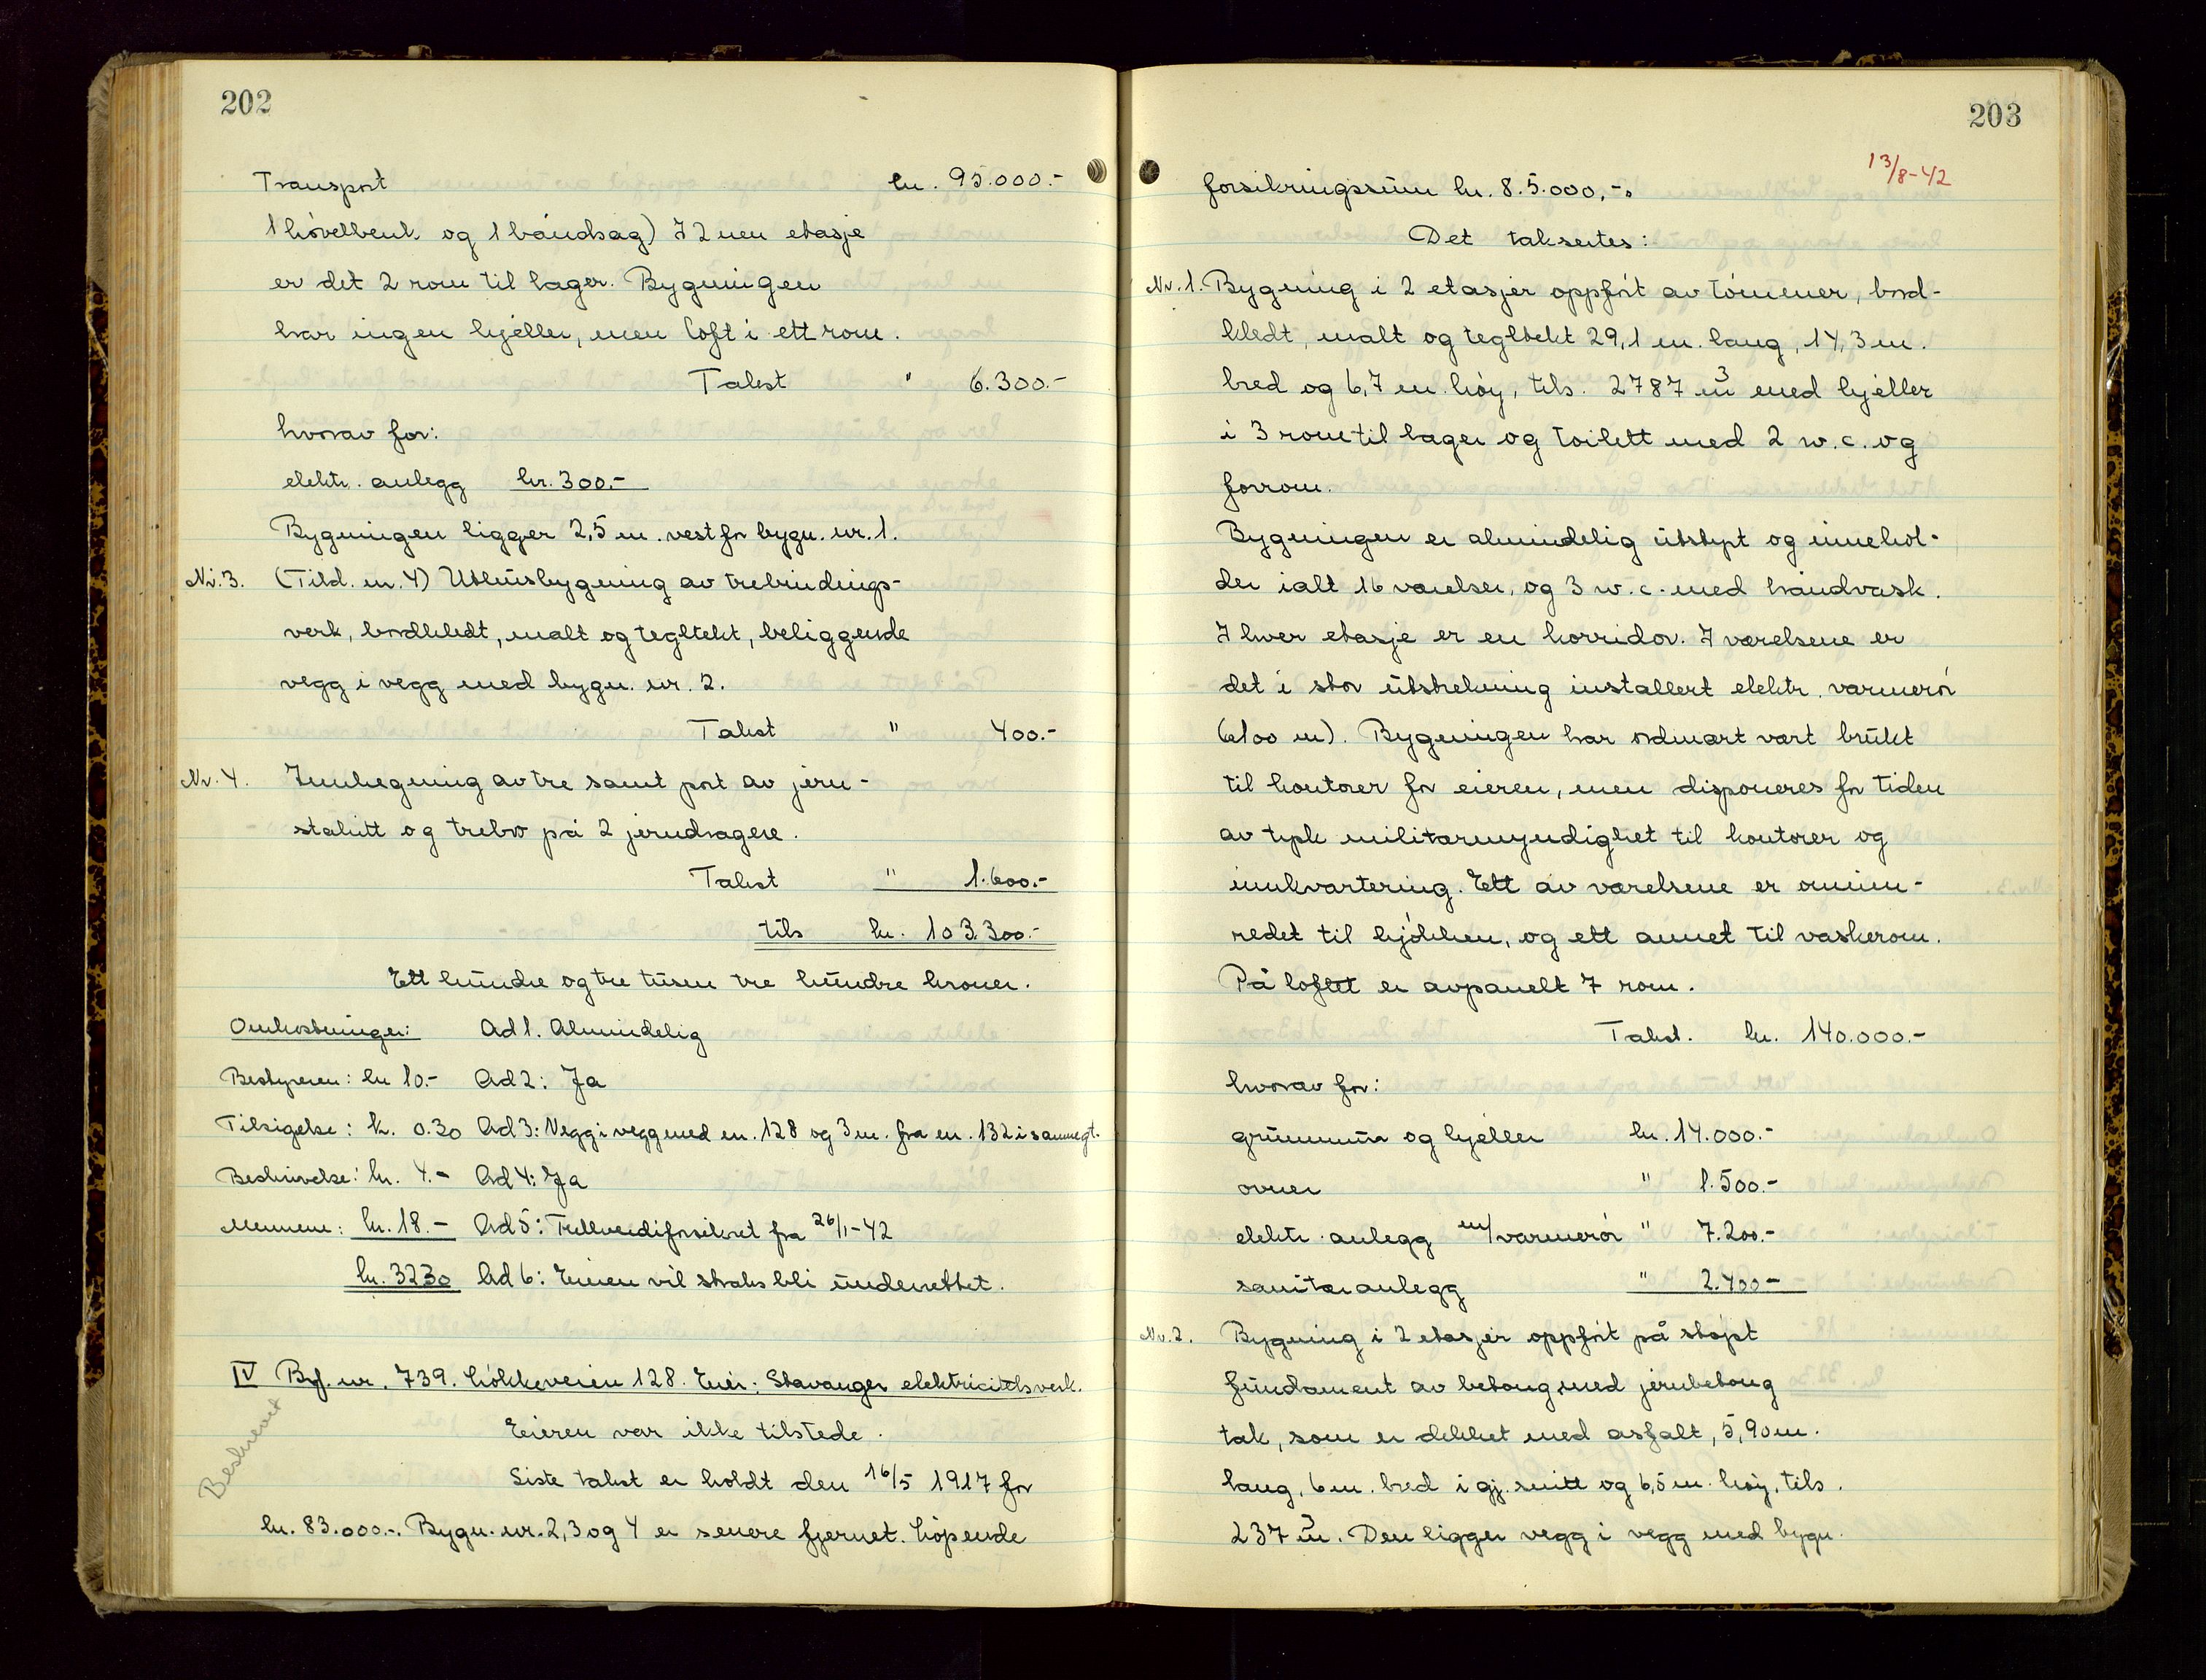 202
Transport kr. 95.000.-
1 høvelbenk og 1 båndsag) I 2nen etasje
er det 2 rom til lager. Bygningen
har ingen kjeller, men loft i ett rom.
Takst " 6.300.-
hvorav for:
elektr. anlegg kr. 300.-
Bygningen ligger 2,5 m. vest for bygn. nr. 1.
Nr. 3. (Tild. nr. 4) Uthusbygning av trebindings-
verk, bordkledt, malt og tegltekt, beliggende
vegg i vegg med bygn. nr. 2.
Takst " 400.-
Nr. 4. Innhegning av tre samt port av jern-
stakitt og trebro på 2 jerndragere.
Takst " 1.600.-
tils kr. 103.300.-
Ett hundre og tre tusen tre hundre kroner.
Omkostninger: Ad 1. Almindelig
Bestyreren: kr 10.- Ad 2: Ja
Tilsigelse: k. 0.30 Ad 3: Vegg i vegg med en. 128 og 3 m. fra en. 132 i samme gt.
Beskrivelse: kr. 4.- Ad 4: Ja
Mennene: kr. 18.- Ad 5: Fullverdiforsikret fra 26/1-42
kr. 32.30 Ad 6: Eieren vil straks bli underrettet.
IV Brf. nr. 739. Løkkeveien 128. Eier: Stavanger elektricitetsverk.
Beskrevet
Eieren var ikke tilstede.
Siste takst er holdt den 16/5 1917 for
kr. 83.000.-. Bygn. nr. 2, 3 og 4 er senere fjernet. Løpende
203
13/8-42
forsikringssum kr. 8.5.000,-.
Det taksertes:
Nr. 1. Bygning i 2 etasjer oppført av tømmer, bord-
kledt, malt og tegltekt 29,1 m. lang, 14,3 m.
bred og 6,7 m. høy, tils. 2787 m3 med kjeller
i 3 rom til lager og toilett med 2 w.c. og
forrom.
Bygningen er almindelig utstyrt og innehol-
der ialt 16 værelser, og 3 w.c. med håndvask.
I hver etasje er en korridor. I værelsene er
det i stor utstrekning installert elektr. varmerør
(100 m). Bygningen har ordinært vært brukt
til kontorer for eieren, men disponeres for tiden
av tysk militærmyndighet til kontorer og
innkvartering. Ett av værelsene er ominn-
redet til kjøkken, og ett annet til vaskerom.
På loftet er avpanelt 7 rom.
Takst. kr. 140.000.-
hvorav for:
grunnmur og kjeller kr. 14.000.-
ovner " 1.500.-
elektr. anlegg m/varmerør " 7.200.-
sanitæranlegg " 2.400-
Nr. 2. Bygning i 2 etasjer oppført på støpt
fundament av betong, med jernbetong
tak, som er dekket med asfalt, 5,90 m.
lang, 6 m. bred i gj. snitt og 6,5 m. høy, tils.
237 m3. Den ligger vegg i vegg med bygn.